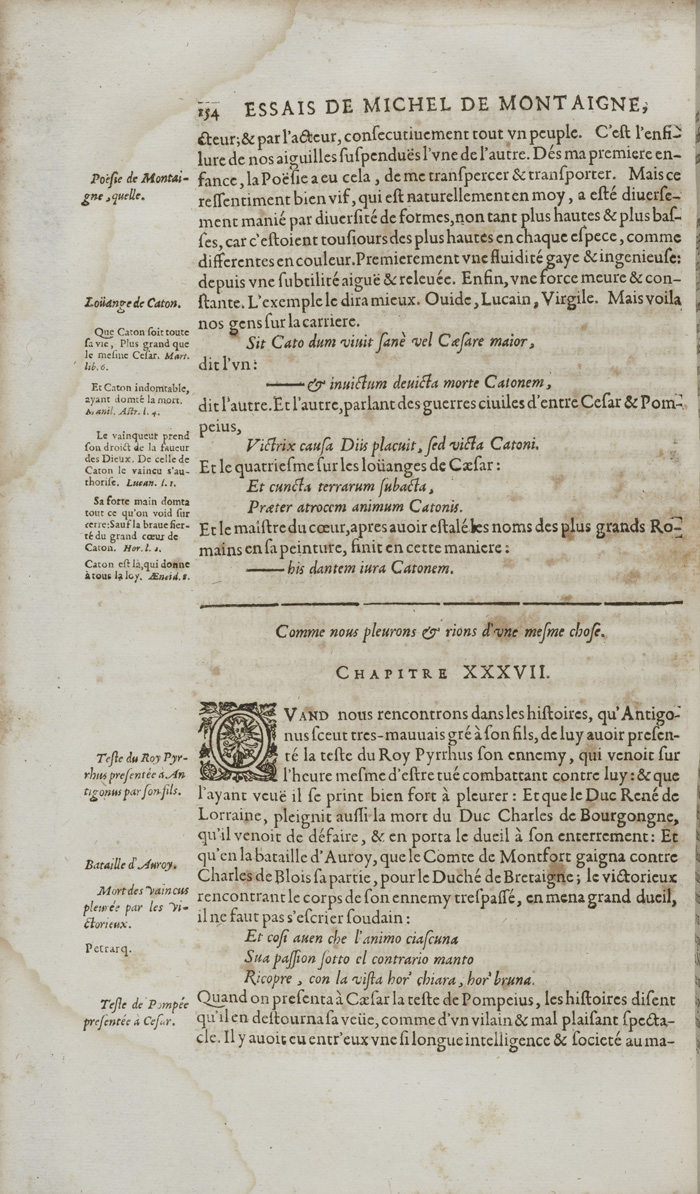 154 ESSAIS DE MICHEL DE MONTAIGNE,
cteur; & par l'acteur, conſecutiuement tout vn peuple. C'eſt l'enfi-
lure de nos aiguilles ſuſpenduës l'vne de l'autre. Dés ma premiere en-
fance, la Poëſie a eu cela, de me tranſpercer & tranſporter. Mais ce
reſſentiment bien vif, qui eſt naturellement en moy, a eſté diuerſe-
ment manié par diuerſité de formes, non tant plus hautes & plus baſ-
ſes, car c'eſtoient touſiours des plus hautes en chaque eſpece, comme
differentes en couleur. Premierement vne fluidité gaye & ingenieuſe:
depuis vne ſubtilité aiguë & releuée. Enfin, vne force meure & con-
ſtante. L'exemple le dira mieux. Ouide, Lucain, Virgile. Mais voila
nos gens ſur la carriere.
Sit Cato dum viuit ſanè vel Cæſare maior,
dit l'vn:
—— & inuictum deuicta morte Catonem,
dit l'autre. Et l'autre, parlant des guerres ciuiles d'entre Ceſar & Pom-
peius,
Victrix cauſa Diis placuit, ſed victa Catoni.
Et le quatrieſme ſur les loüanges de Cæſar:
Et cuncta terrarum ſubacta,
Præter atrocem animum Catonis.
Et le maiſtre du cœur, apres auoir eſtalé les noms des plus grands Ro-
mains en ſa peinture, finit en cette maniere:
—— his dantem iura Catonem.
Poëſie de Montai-
gne, quelle.
Loüange de Caton.
Que Caton ſoit toute
ſa vie, Plus grand que
le meſme Ceſar. Mart.
lib. 6.
Et Caton indomtable,
ayant domté la mort.
Manil. Aſtr. l. 4.
Le vainqueur prend
ſon droict de la faueur
des Dieux. De celle de
Caton le vaincu s'au-
thoriſe. Lucan. l. 1.
Sa forte main domta
tout ce qu'on void ſur
terre: Sauf la braue fier-
té du grand cœur de
Caton. Hor. l. 2.
Caton eſt là, qui donne
à tous la loy. Æneid. 8.
Comme nous pleurons & rions d'vne meſme choſe.
CHAPITRE XXXVII.
QVAND nous rencontrons dans les hiſtoires, qu'Antigo-
nus ſceut tres-mauuais gré à ſon fils, de luy auoir preſen-
té la teſte du Roy Pyrrhus ſon ennemy, qui venoit ſur
l'heure meſme d'eſtre tué combattant contre luy: & que
l'ayant veuë il ſe print bien fort à pleurer: Et que le Duc René de
Lorraine, pleignit auſſi la mort du Duc Charles de Bourgongne,
qu'il venoit de défaire, & en porta le dueil à ſon enterrement: Et
qu'en la bataille d'Auroy, que le Comte de Montfort gaigna contre
Charles de Blois ſa partie, pour le Duché de Bretaigne; le victorieux
rencontrant le corps de ſon ennemy treſpaſſé, en mena grand dueil,
il ne faut pas s'eſcrier ſoudain:
Et coſi auen che l'animo ciaſcuna
Sua paſſion ſotto el contrario manto
Ricopre, con la viſta hor' chiara, hor' bruna.
Quand on preſenta à Cæſar la teſte de Pompeius, les hiſtoires diſent
qu'il en deſtourna ſa veüe, comme d'vn vilain & mal plaiſant ſpecta-
cle. Il y auoit eu entr'eux vne ſi longue intelligence & ſocieté au ma-
Teſte du Roy Pyr-
rhus preſentée à An
tigonus par ſon fils.
Bataille d'Auroy.
Mort des vaincus
pleurée par les vi-
ctorieux.
Petrarq.
Teſte de Pompée
preſentée à Ceſar.